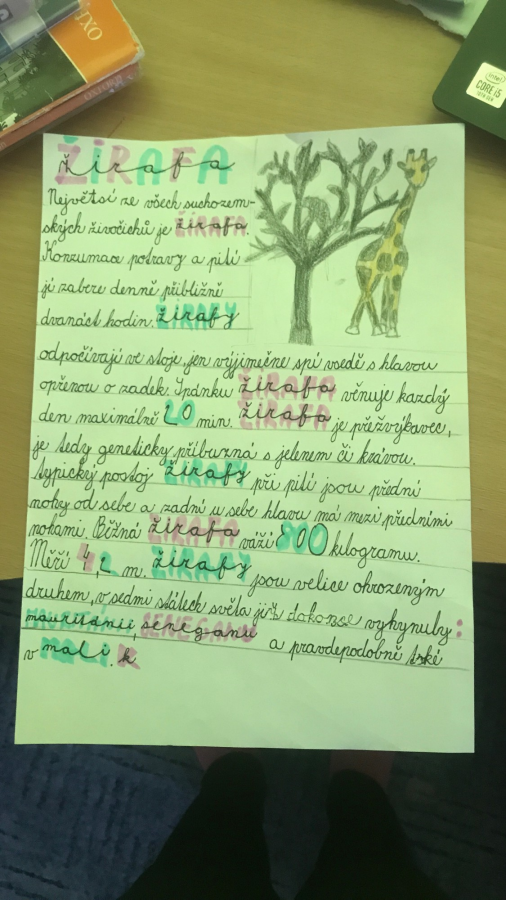 OXFO
intel
CORE i5
10TH GEN
ŽIRAFA
Žirafa
Největší ze všech suchozem-
ských živočichů je žirafa.
Konzumace potravy a pití
jí zabere denně přibližně
dvanáct hodin. žirafy
odpočívají ve stoje, jen výjimečně spí vsedě s hlavou
opřenou o zadek. Spánku žirafa věnuje kazdý
den maximálně 20 min. žirafa je přežvýkavec,
je tedy geneticky příbuzná s jelenem či krávou.
typický postoj žirafy při pití jsou přední
nohy od sebe a zadní u sebe hlavu má mezi předními
nohami. Běžná žirafa váží 800 kilogramu.
Měří 4,2 m. žirafy jsou velice ohrozeným
druhem, v sedmi státech světa již dokonse vyhynuly:
mauritánii, seneganu a pravdepodobně také
v mali. k